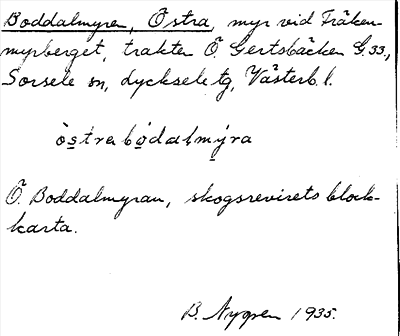 Boddalmyren, Östra, myr vid Fräken-
myrberget, trakten Ö. Gertsbäcken G. 33.,
Sorsele sn, Lycksele tg, Västerb. l.
östrabòdalmýra
Ö. Boddalmyran, skogsrevirets block-
karta.
B. Nygren 1935.